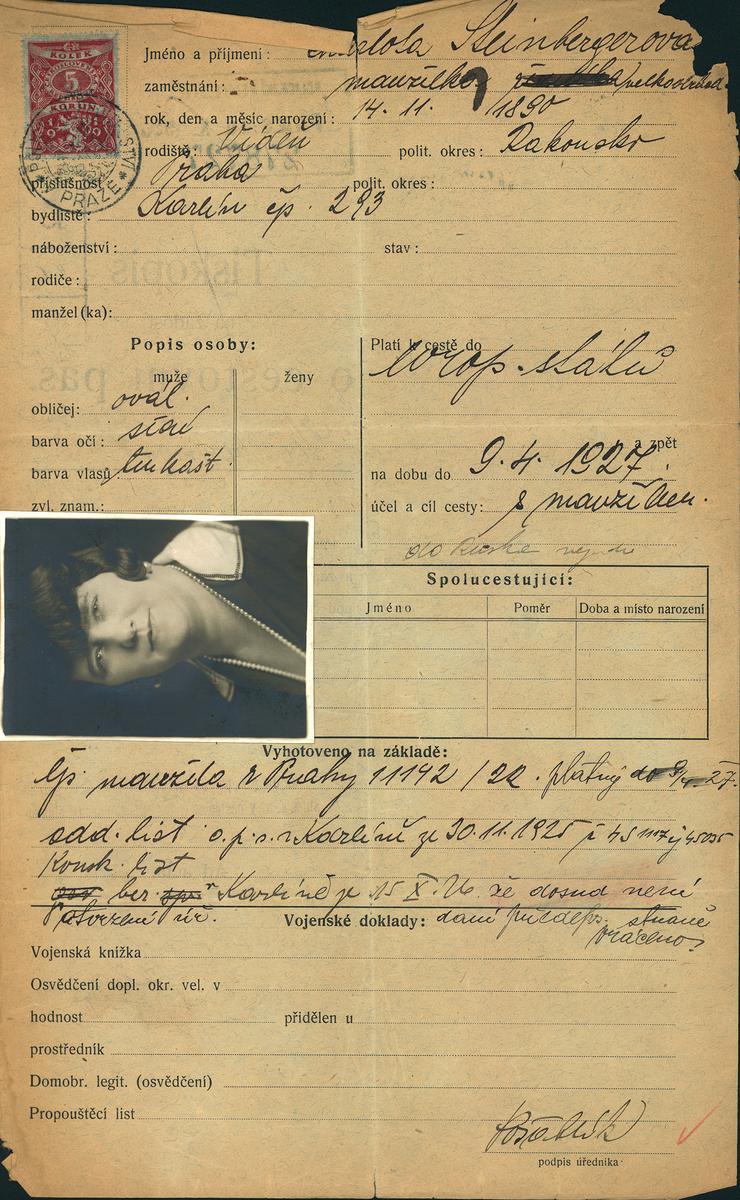 KOLEK
5
KORUN
1919
PRAZE
Jméno a příjmení: Steinbergerová
zaměstnání: manželka velkoobchod.
rok, den a měsíc narození: 14. 11. 1890
rodiště: Vídeň polit. okres: Rakousko
příslušnost: Praha polit. okres:
bydliště: Karlín čp. 293
náboženství: stav:
rodiče:
manžel(ka):
Popis osoby:
muže ženy
obličej: ovál.
barva očí: šedé
barva vlasů: tm kašt.
zvl. znam.:
Platí k cestě do
evrop. států
a zpět
na dobu do 9. 4. 1927.
účel a cíl cesty: s manželem.
do Ruska
Spolucestující:
Jméno Poměr Doba a místo narození
Vyhotoveno na základě:
manžela z Prahy 11142/22. platný do 9/4 27.
odd. list o. p. s. v Karlíně ze 30. 11. 1925
list
ber. Karlíně ze 15 X. 26. že dosud není
potvrzení
Vojenské doklady: daní předeps. straně
vráceno
Vojenská knížka
Osvědčení dopl. okr. vel. v
hodnost přidělen u
prostředník
Domobr. legit. (osvědčení)
Propouštěcí list
podpis úředníka